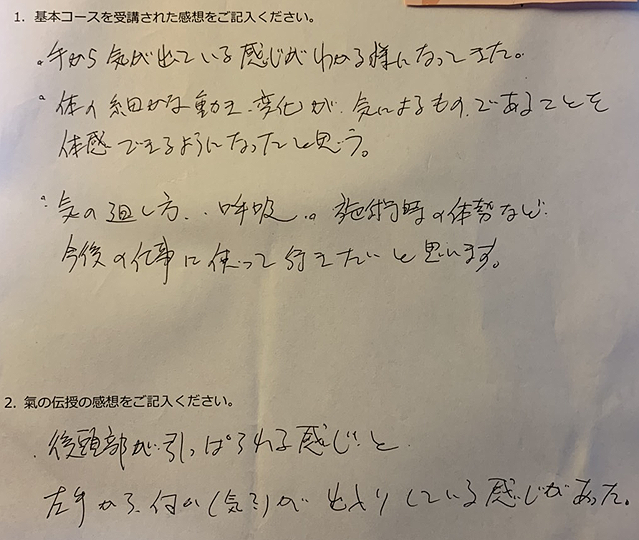 1. 基本コースを受講された感想をご記入ください。
。手から気が出ている感じがわかる様になってきた。
。体の細かな動き、変化が、気によるもの、であることを
体感できるようになったと思う。
。気の廻し方、呼吸、施術時の体勢など
今後の仕事に使って行きたいと思います。
2. 氣の伝授の感想をご記入ください。
後頭部が引っぱられる感じと
左手から、何か(気?)が出入りしている感じがあった。